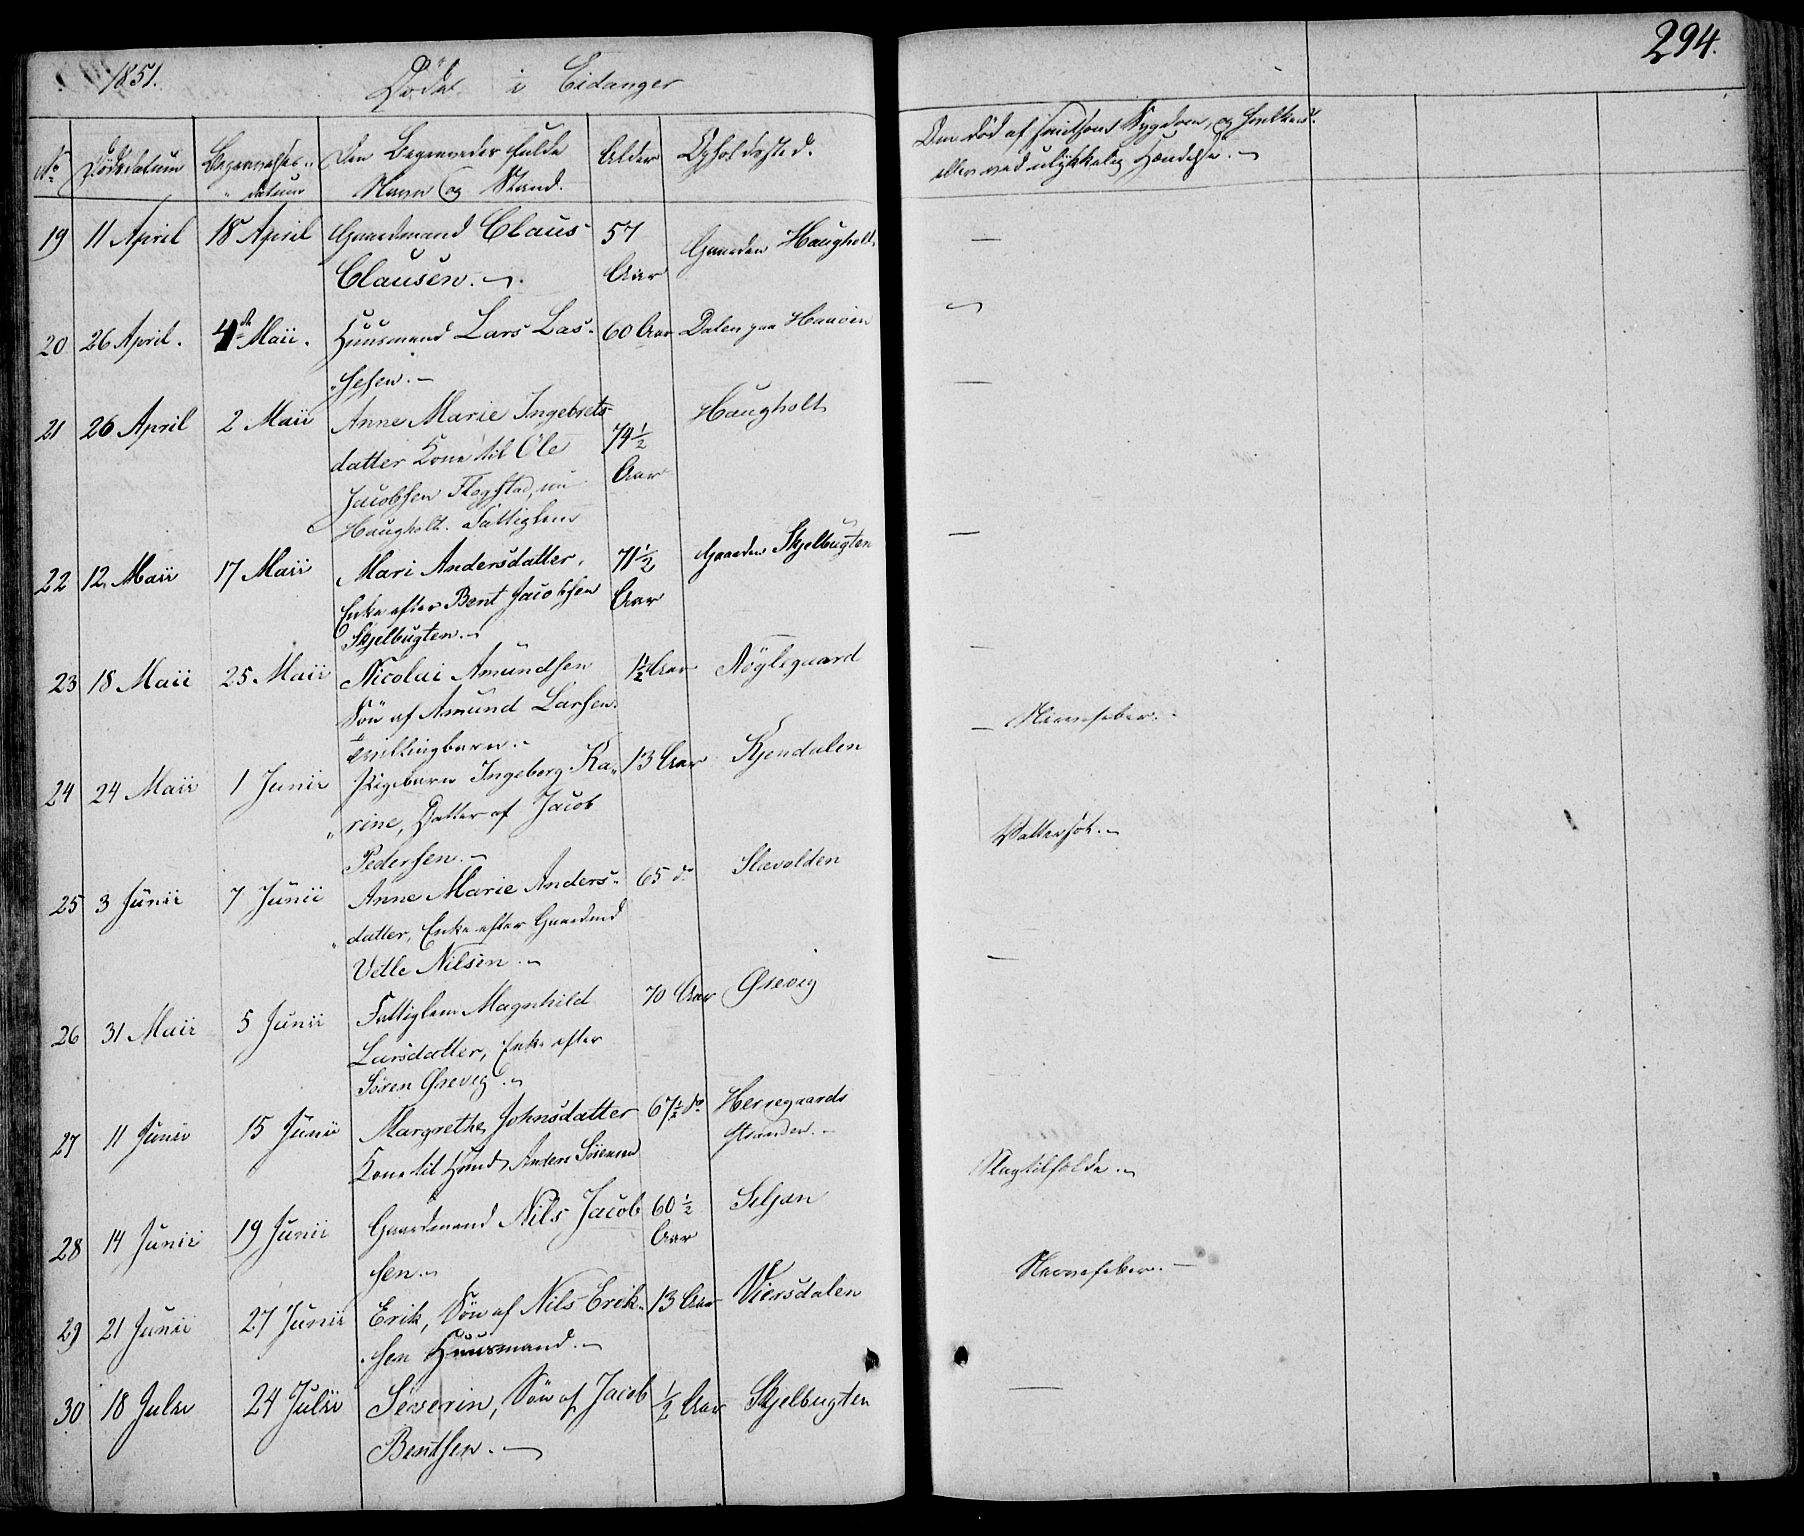 1851.
Døde i Eidanger
294.
No
Dødsdatum
Begravelses-
datum
Den Begravedes fulde
Navn og Stand.
Alder
Opholdssted.
Om død af Sygdom, og hvilken?
eller ved ulykkelig Hændelse. –
19 11 April 18 April Gaardmand Claus 57 Gaarden Haugholt –
Clausen. – Aar
20 26 April. 4de Maii. Huusmand Lars Las- 60 Aar Dalen paa Haaven –
"sesen. –
21 26 April 2 Maii Anne Marie Ingebrets- 74½ Haugholt –
datter Kone til Ole Aar
Jacobsen Flogstad, nu
Haugholt. Fattiglem
22 12 Maii 17 Maii Mari Andersdatter, 71½ Gaarden Skjelbugten –
Enke efter Bent Jacobsen Aar
Skjelbugten. –
23 18 Maii 25 Maii Nicolai Amundsen 1½ Aar Nøglegaard –
Søn af Amund Larsen.
Tvillingbarn. –
24 24 Maii 1 Junii Pigebarn Ingeborg Ka- 13 Aar Kjendalen – Nervefeber. –
"rine, Datter af Jacob
Pedersen. –
25 3 Junii 7 Junii Anne Marie Anders- 65 do Slævolden Vattersot. –
"datter, Enke efter Gaardmd
Vetle Nilsen. –
26 31 Maii 5 Junii Fattiglem Magnhild 70 Aar Ørevig –
Larsdatter, Enke efter
Søren Ørevig. –
27 11 Junii 15 Junii Margrethe Johnsdatter 67½ do Herregaards
Kone til Huusmd Anders Sørensen stranden. –
28 14 Junii 19 Junii Gaardmand Nils Jacob 60½ Seljan Slagtilfælde. –
sen. – Aar
29 21 Junii 27 Junii Erik, Søn af Nils Erik- 13 Aar Viersdalen Nervefeber. –
sen Huusmand. –
30 18 Julii 24 Julii Severin, Søn af Jacob ½ Aar Skjelbugten –
Bentsen. –